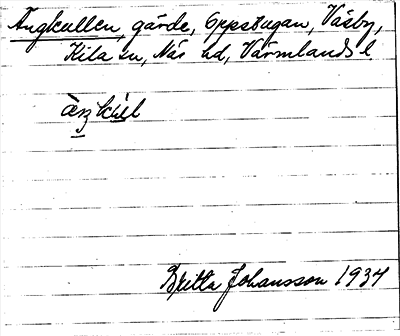 Ängkullen, gärde, Oppstugan, Väsby,
Kila sn, Näs hd, Värmlands l.
Britta Johansson 1934